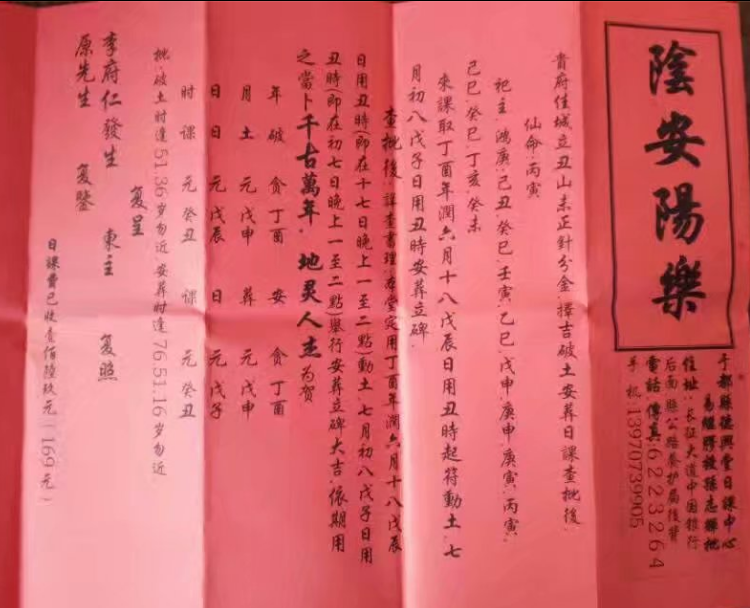 陰安陽樂
于都縣德興堂日課中心
易經膠授孫志樑批
住址:长征大道中国银行
后面縣公路养护局後贊
電話傳真:6223264
手机13970739905
貴府佳城立丑山未正針分金.擇吉破土安葬日課查批後.
仙命:丙寅
祀主:鴻庚:己丑.癸巳.壬寅.乙巳.戊申.庚申.庚寅.丙寅.
己巳.癸巳.丁亥.癸未
來課取丁酉年潤六月十八戊辰日用丑時起符動土.七
月初八戊子日用丑時安葬立碑.
查批後.詳查書理.本堂定用丁酉年潤六月十八戊辰
日用丑時(即在十七日晚上一至二點)動土.七月初八戊子日用
丑時(即在初七日晚上一至二點)舉行安葬立碑大吉.依期用
之當卜千古萬年.地灵人杰为贺
年破貪丁酉安貪丁酉
月土元戊申葬元戊申
日日元戊辰日元戊子
时課元癸丑課元癸丑
批:破土时逢51.36岁勿近.安葬时逢76.51.16岁勿近
复呈
李府仁發生東主复照
原先生复鑒
日課費已收壹佰陸玖元(169元)